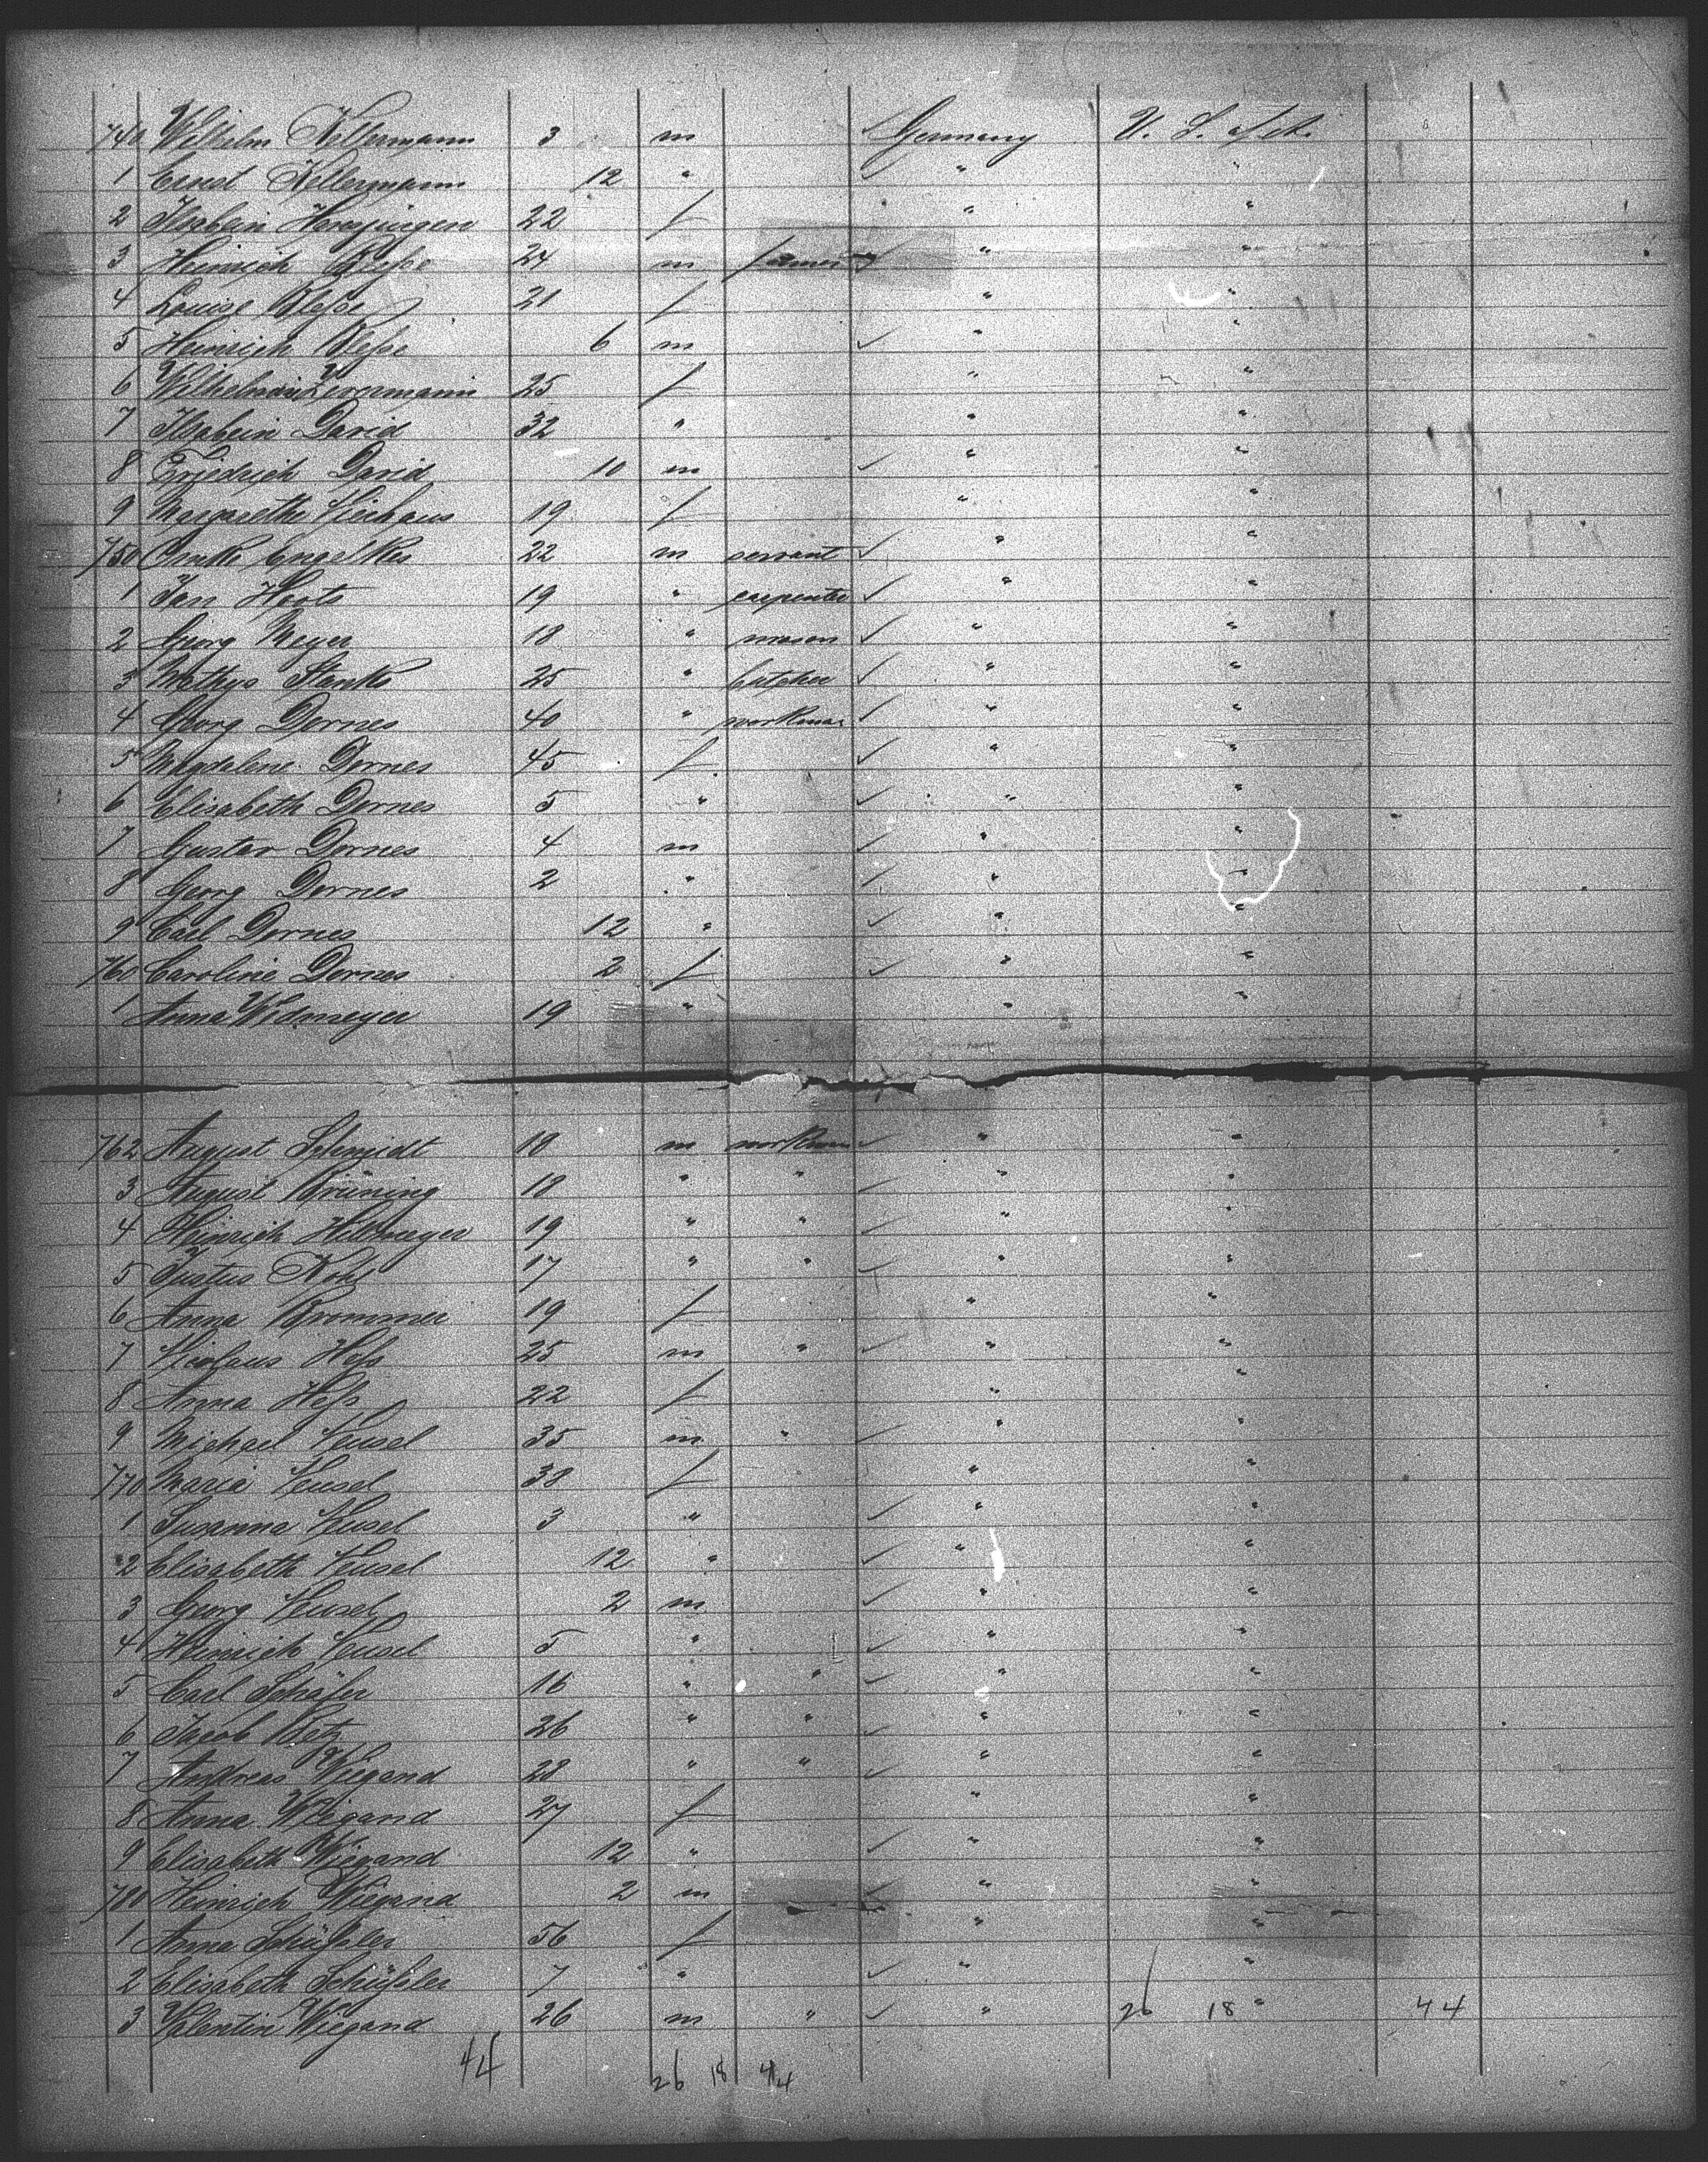 740 Wilhelm Kellermann 3 m Germany U. S. of A.
1 Ernst Kellermann 12 " " "
2 Ilsabein 22 f " "
3 Heinrich Bleße 24 m farmer " "
4 Louise Bleße 21 f " "
5 Heinrich Bleße 6 m " "
6 25 f " "
7 Ilsabein David 32 " " "
8 Friedrich David 10 m " "
9 Margarethe Niehaus 19 f " "
750 Onko Engelkes 22 m servant " "
1 Jan 19 " carpenter " "
2 Georg Meyer 18 " mason " "
3 Mathys Stanko 25 " butcher " "
4 Georg Dornes 40 " workman " "
5 Magdalene Dornes 45 f " "
6 Elisabeth Dornes 5 " " "
7 Gustav Dornes 4 m " "
8 Georg Dornes 2 " " "
9 Carl Dornes 12 " " "
760 Caroline Dornes 2 f " "
1 Anna Widmeyer 19 " " "
762 August Schmidt 18 m workman " "
3 August Brüning 18 " " " "
4 Heinrich 19 " " " "
5 Justus Kohl 17 " " " "
6 Anna Brommer 19 f " "
7 Nicolaus Heß 25 m " " "
8 Anna Heß 22 f " "
9 Michael Keusel 35 m " " "
770 Maria Keusel 38 f " "
1 Susanna Keusel 3 " " "
2 Elisabeth Keusel 12 " " "
3 Georg Keusel 2 m " "
4 Heinrich Keusel 5 " " "
5 Carl Schäfer 16 " " " "
6 Jacob Betz 26 " " " "
7 Andreas Wiegand 28 " " " "
8 Anna Wiegand 27 f " "
9 Elisabeth Wiegand 12 " " "
780 Heinrich Wiegand 2 m " "
1 Anna Schüßler 56 f " "
2 Elisabeth Schüßler 7 " " "
3 Valentin Wiegand 26 m " " 26 18 " 44
44 26 18 44